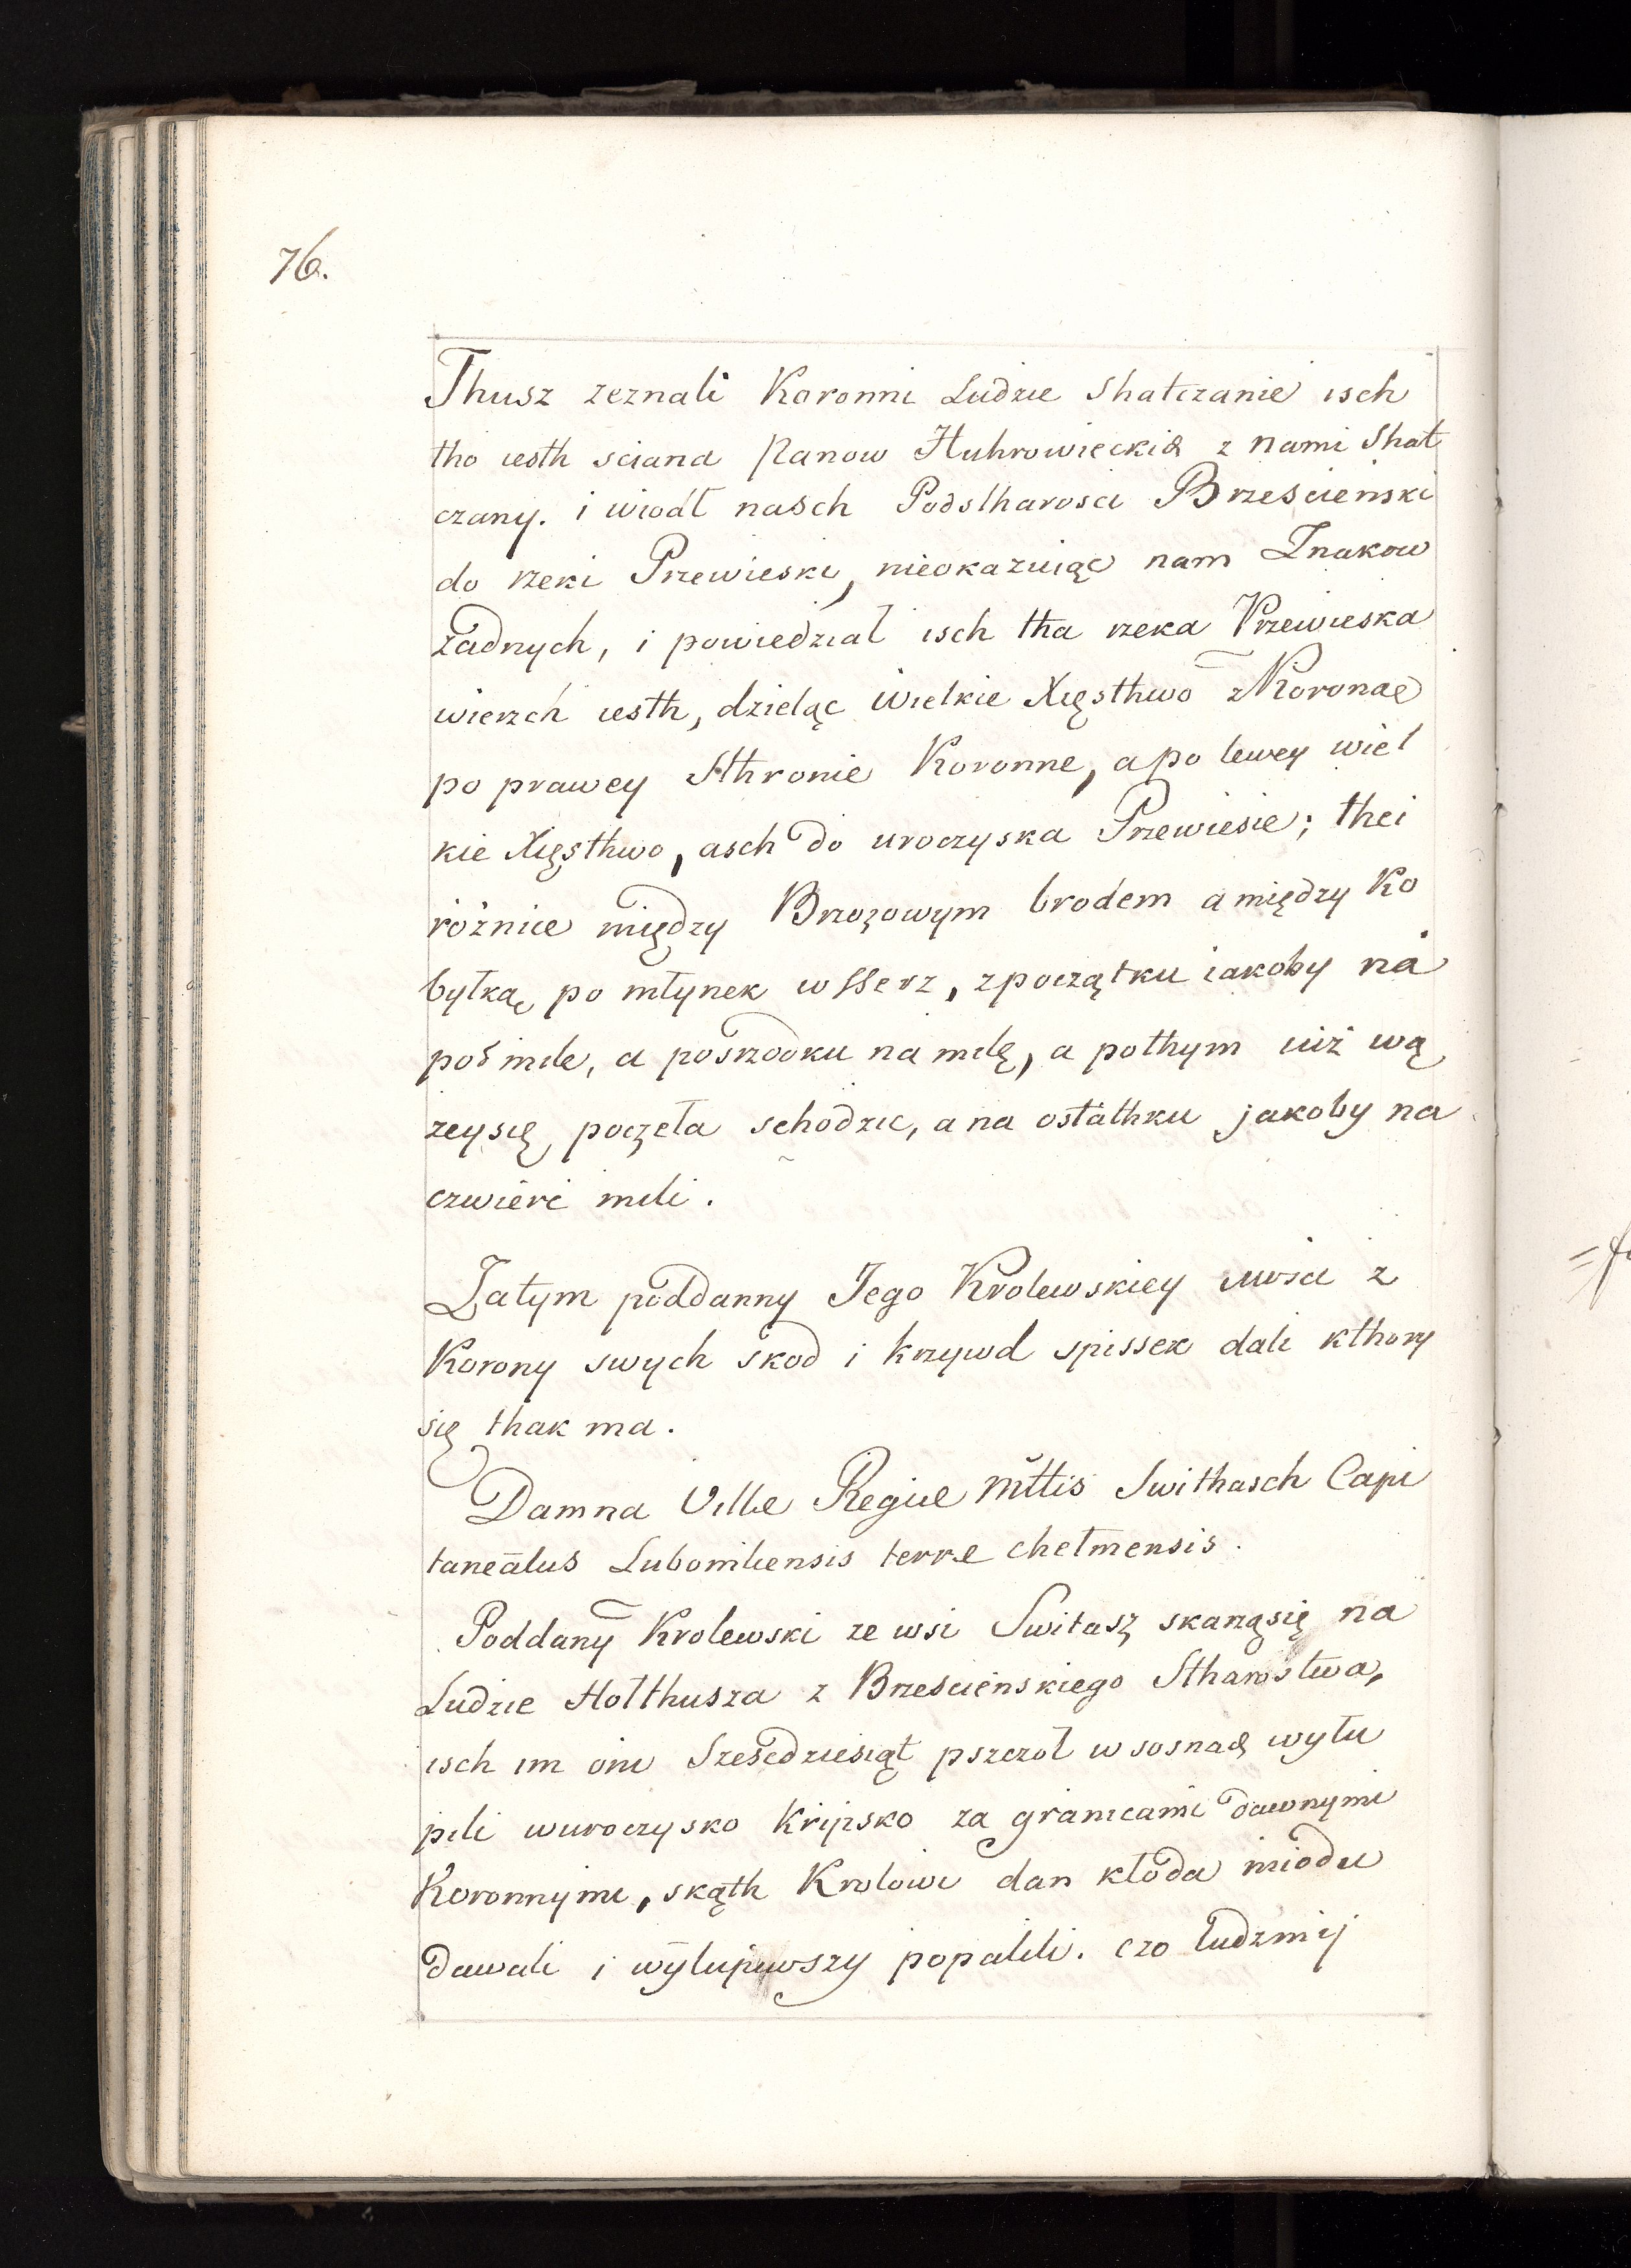 76.
Thusz zeznali Koronni Ludzie Shatczanie isch
tho iesth sciana Panow Huhrowieckich z nami Shat
czany. i wiodł nasch Podstharosci Brzescienski
do rzeki Przewieski, nieokazuiąc nam Znakow
żadnych, i powiedział isch tha rzeka Przewieska
wierzch iesth, dzieląc Wielkie Xięsthwo z Koroną
po prawey Sthronie Koronne, a po lewey wiel
kie Xięsthwo, asch do uroczyska Przewiesie; thei
rożnice między Brzozowym brodem a między Ko
byłką po młynek wsserz, zpoczątku iakoby na
poł mile, a posrzodku na milę, a pothym iuż wą
zey się poczęła schodzic, a na ostathku jakoby na
czwierć mili.
Zatym poddanny Jego Krolewskiey Mosci z
Korony swych skod i krzywd spissek dali kthory
się thak ma.
Damna Ville Regiae Mttis Swithasch Capi
taneatus Lubomliensis terre chelmensis.
Poddany Krolewski ze wsi Switasz skarzą się na
Ludzie Holthusza z Brzescienskiego Stharostwa,
isch im oni Szescdziesiąt pszczoł w sosnach wyłu
pili wuroczysko Kripsko za granicami dawnymi
Koronnymi, skąth Krolowi dan kłoda miodu
dawali i wyłupiwszy popalili. czo ludzmij